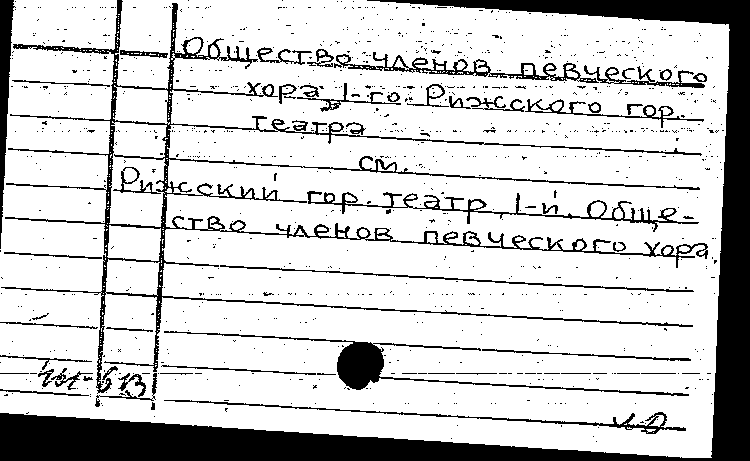 Общество членов певческого
хора 1-го Рижского гор.
театра
см.
Рижский гор. театр, 1-й. Обще-
ство членов певческого хора.